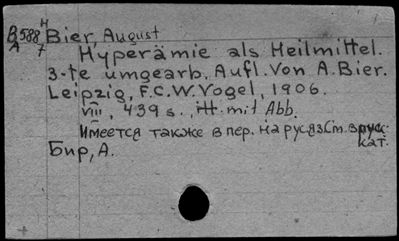 H
B 588 Bier, August
A 7
Hyperämie als Heilmittel.
3-te umgearb. Aufl. von A. Bier.
Leipzig, F.C.W. Vogel, 1906.
VIII, 439 s., mit Abb.
Имеется также в пер. на рус.яз См. в рус.
кат.
Бир, А.